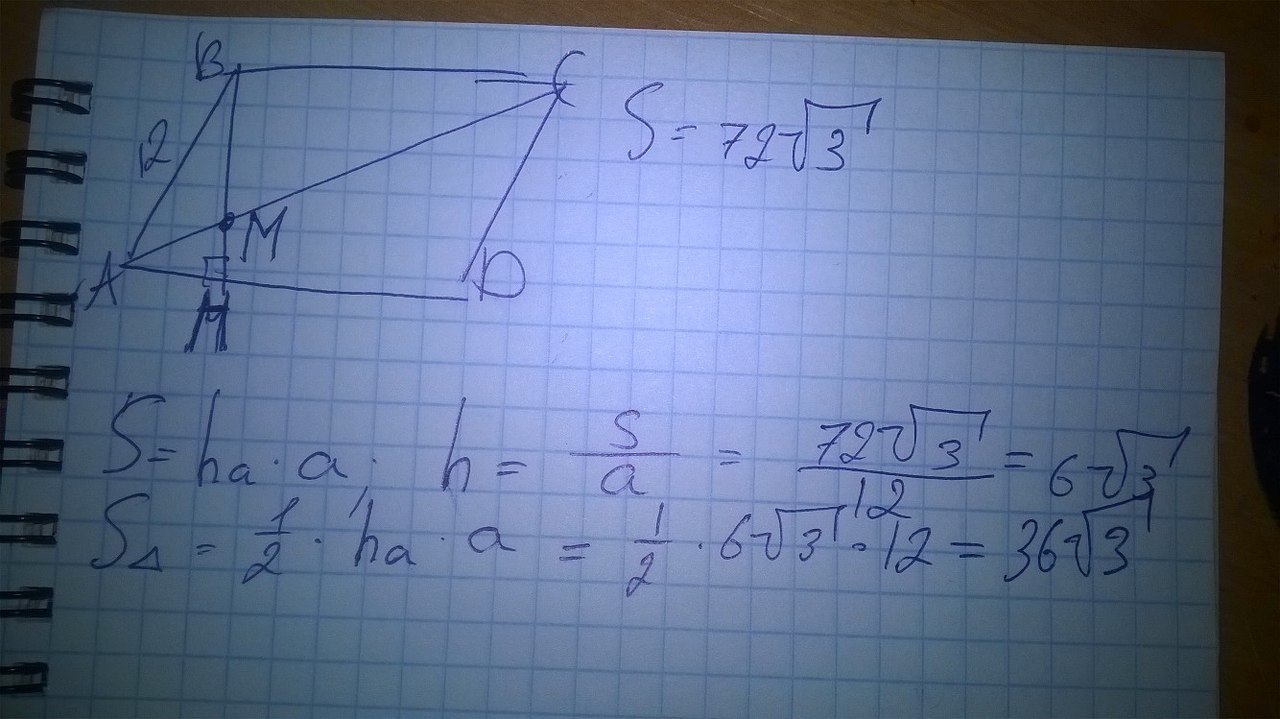 B C
S = 72√3
12
M
A D
H
S = hₐ · a; h = S/a = 72√3/12 = 6√3
S△ = 1/2 · hₐ · a = 1/2 · 6√3 · 12 = 36√3